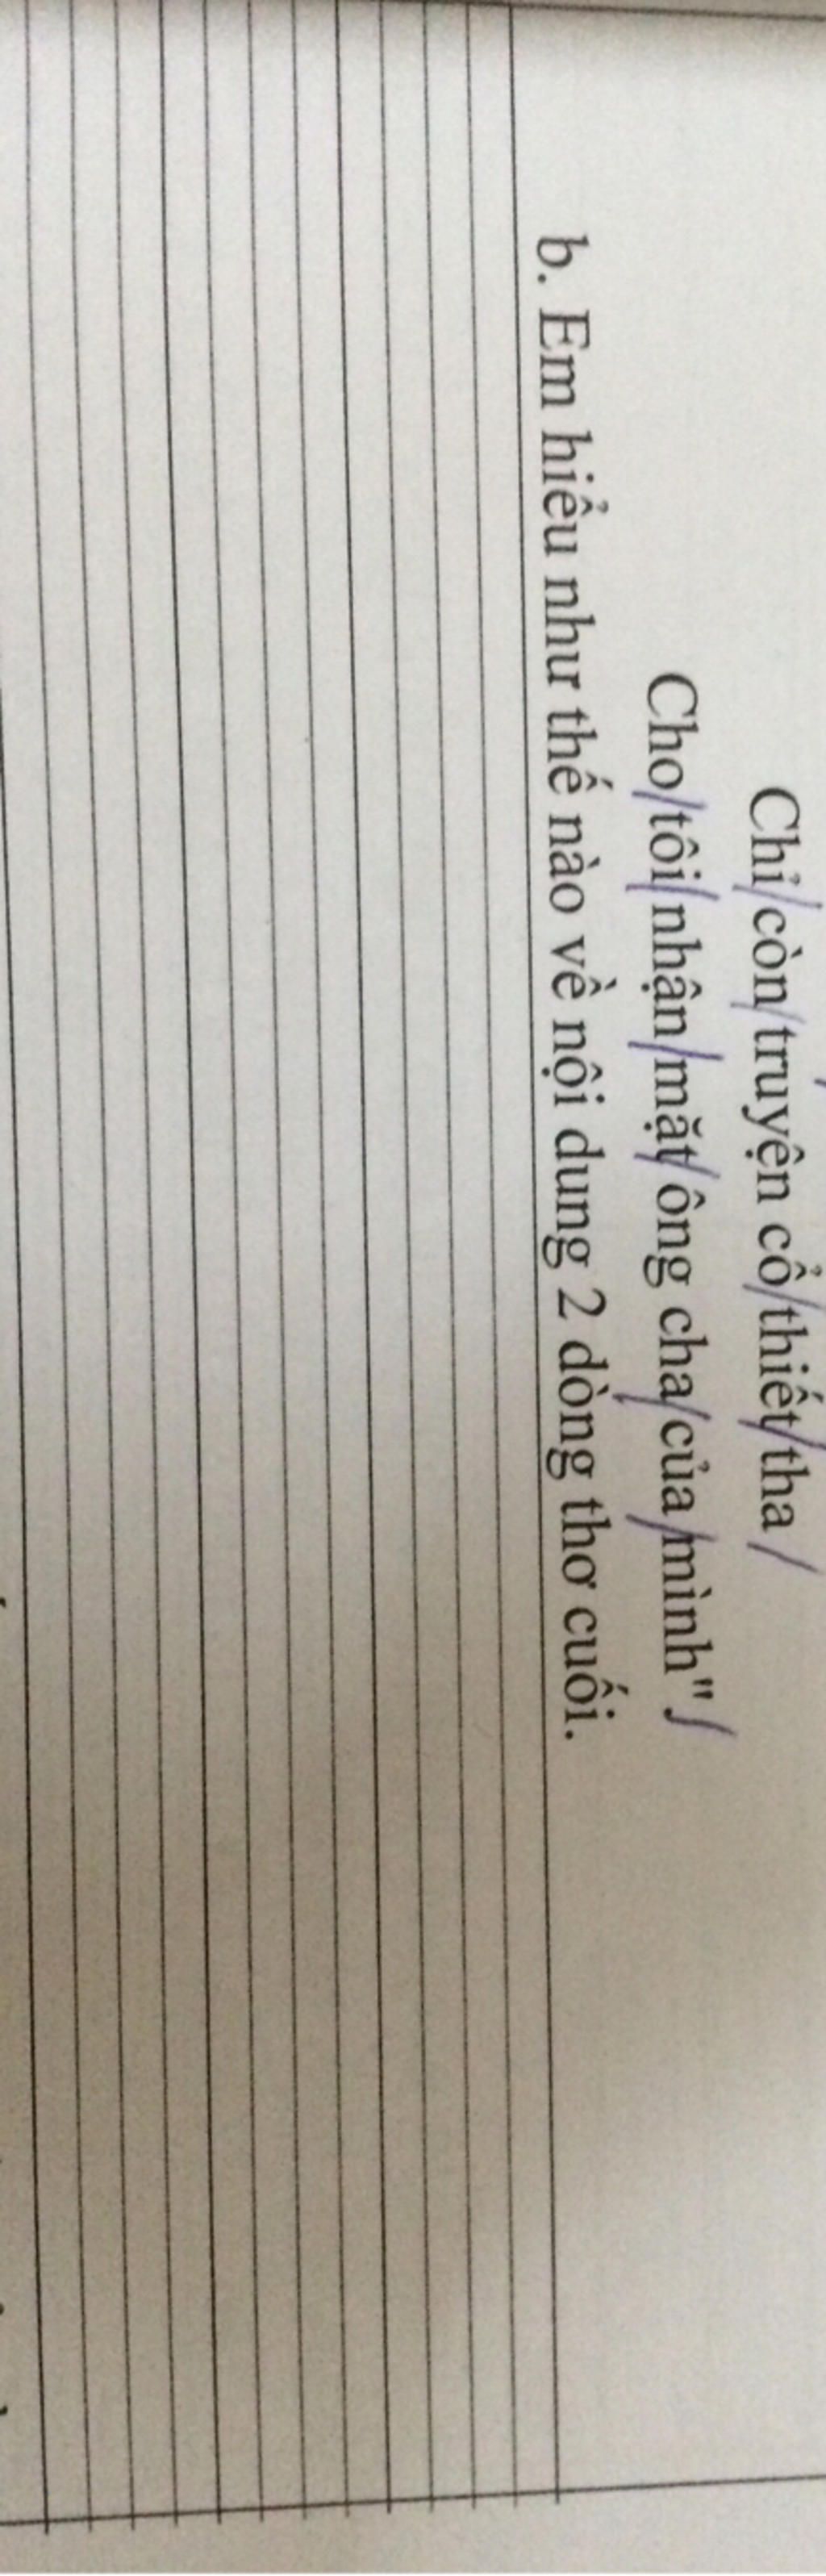 Chỉ/còn/truyện cổ/thiết/tha/
Cho/tôi/nhận/mặt/ông cha/của/mình"/
b. Em hiểu như thế nào về nội dung 2 dòng thơ cuối.